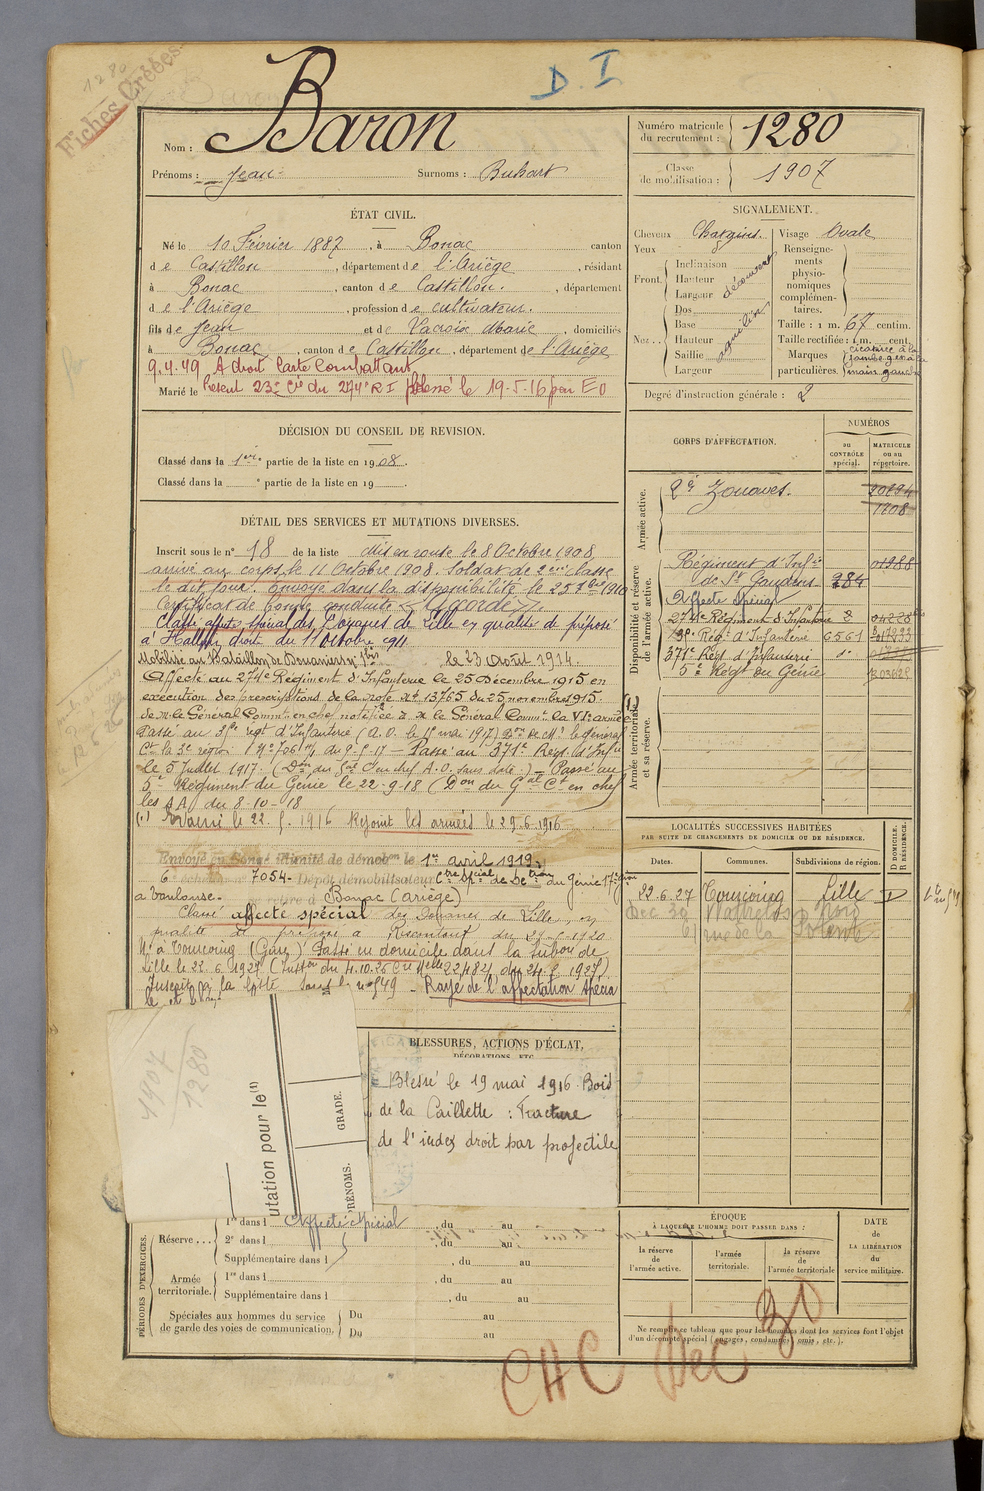 1280
Fiches Créées
D. I
Nom : Baron
Prénoms : Jean Surnoms : Buhart
Numéro matricule du recrutement : 1280
Classe de mobilisation : 1907
ÉTAT CIVIL.
Né le 10 Février 1887, à Bonac canton
de Castillon, département de l'Ariège, résidant
à Bonac, canton de Castillon, département
de l'Ariège, profession de cultivateur.
fils de Jean et de Vacroix Marie, domiciliés
à Bonac, canton de Castillon, département de l'Ariège
9.4.49 A droit Carte Combattant
Marié le
Présent 23e Cie du 274e RI blessé le 19-5-16 par EO
SIGNALEMENT.
Cheveux Chatains. Visage Ovale
Yeux
Front. Inclinaison
Hauteur découvert
Largeur
Nez... Dos
Base
Hauteur aquilin
Saillie
Largeur
Renseignements physionomiques complémentaires.
Taille : 1 m. 67 centim.
Taille rectifiée : 1 m. cent.
Marques particulières. cicatrice à la
main gauche
Degré d'instruction générale : 2
DÉCISION DU CONSEIL DE REVISION.
Classé dans la 1ere partie de la liste en 1908.
Classé dans la e partie de la liste en 19
DÉTAIL DES SERVICES ET MUTATIONS DIVERSES.
Inscrit sous le n° 18 de la liste Mis en route le 8 Octobre 1908
arrivé au corps le 11 Octobre 1908. Soldat de 2eme classe
le dit jour. Envoyé dans la disponibilité le 25 7bre 1910
Certificat de bonne conduite « Accordé ».
Classé affecté spécial des Douanes de Lille en qualité de préposé
à Halluin droit du 11 Octobre 1911
Mobilisé au Bataillon de Douaniers n° 1bis le 23 Août 1914.
Affecté au 274e Régiment d'Infanterie le 25 Décembre 1915 en
exécution des prescriptions de la note N° 13765 du 25 novembre 1915
de M. le Général Commt en chef notifiée à M. le Général Commt la VIe armée (1)
Passé au 39e régt d'Infanterie (A.O. le 1er mai 1917) Don de M. le général
Ct la 3e région N° 706 du 9-5-17 — Passé au 371e Régt d'Infie
le 5 Juillet 1917. (Don du Gal Ct en chef A.O. sans date) — Passé au
5e Régiment du Génie le 22-9-18 (Don du Gal Ct en chef
les AA) du 8-10-18
(1) Evacué le 22.5.1916 Rejoint les armées le 29-6-1916
Envoyé en congé illimité de démobon le 1er avril 1919.
6e échelon n° 7054- Dépôt démobilisateur Ctre Spial de Détion du Génie 17e Rion
à Toulouse. retiré à Bonac (Ariège)
Classé affecté spécial des Douanes de Lille, en
qualité de préposé à
à Tourcoing (Gare) Passé en domicile dans la Subon de
Lille le 22.6.1927
Inscrit sur la liste sous le n° 549 - Rayé de l'affectation Spéciale
CORPS D'AFFECTATION.
NUMÉROS
au CONTRÔLE spécial.
MATRICULE ou au répertoire.
Armée active.
2e Zouaves. 20294
1208
Disponibilité et réserve de l'armée active.
Régiment d'Infie
de St Gaudens 284 01988
Affecté Spécial
274e Régiment d'Infanterie
39e Rég. d'Infanterie 6561
371e Régt d'Infanterie
5e Régt du Génie
Armée territoriale et sa réserve.
LOCALITÉS SUCCESSIVES HABITÉES
PAR SUITE DE CHANGEMENTS DE DOMICILE OU DE RÉSIDENCE.
Dates. Communes. Subdivisions de région. D DOMICILE. R RÉSIDENCE.
22.6.27 Tourcoing Lille D
Dec 30 Wattrelos Nord
61 rue de la
1907
1280
utation pour le(1)
GRADE.
PRÉNOMS.
BLESSURES, ACTIONS D'ÉCLAT,
DÉCORATIONS, ETC.
Blessé le 19 mai 1916 Bois
de la Caillette : Fracture
de l'index droit par projectile
PÉRIODES D'EXERCICES.
Réserve... 1re dans l Affecté Spécial, du au
2e dans l, du au
Supplémentaire dans l, du au
Armée territoriale. 1re dans l, du au
Supplémentaire dans l, du au
Spéciales aux hommes du service de garde des voies de communication. Du au
Du au
ÉPOQUE
À LAQUELLE L'HOMME DOIT PASSER DANS :
la réserve de l'armée active.
l'armée territoriale.
la réserve de l'armée territoriale
DATE de LA LIBÉRATION du service militaire.
Ne remplir ce tableau que pour les hommes dont les services font l'objet
d'un décompte spécial (engagés, condamnés, omis, etc.).
CHC Dec 30